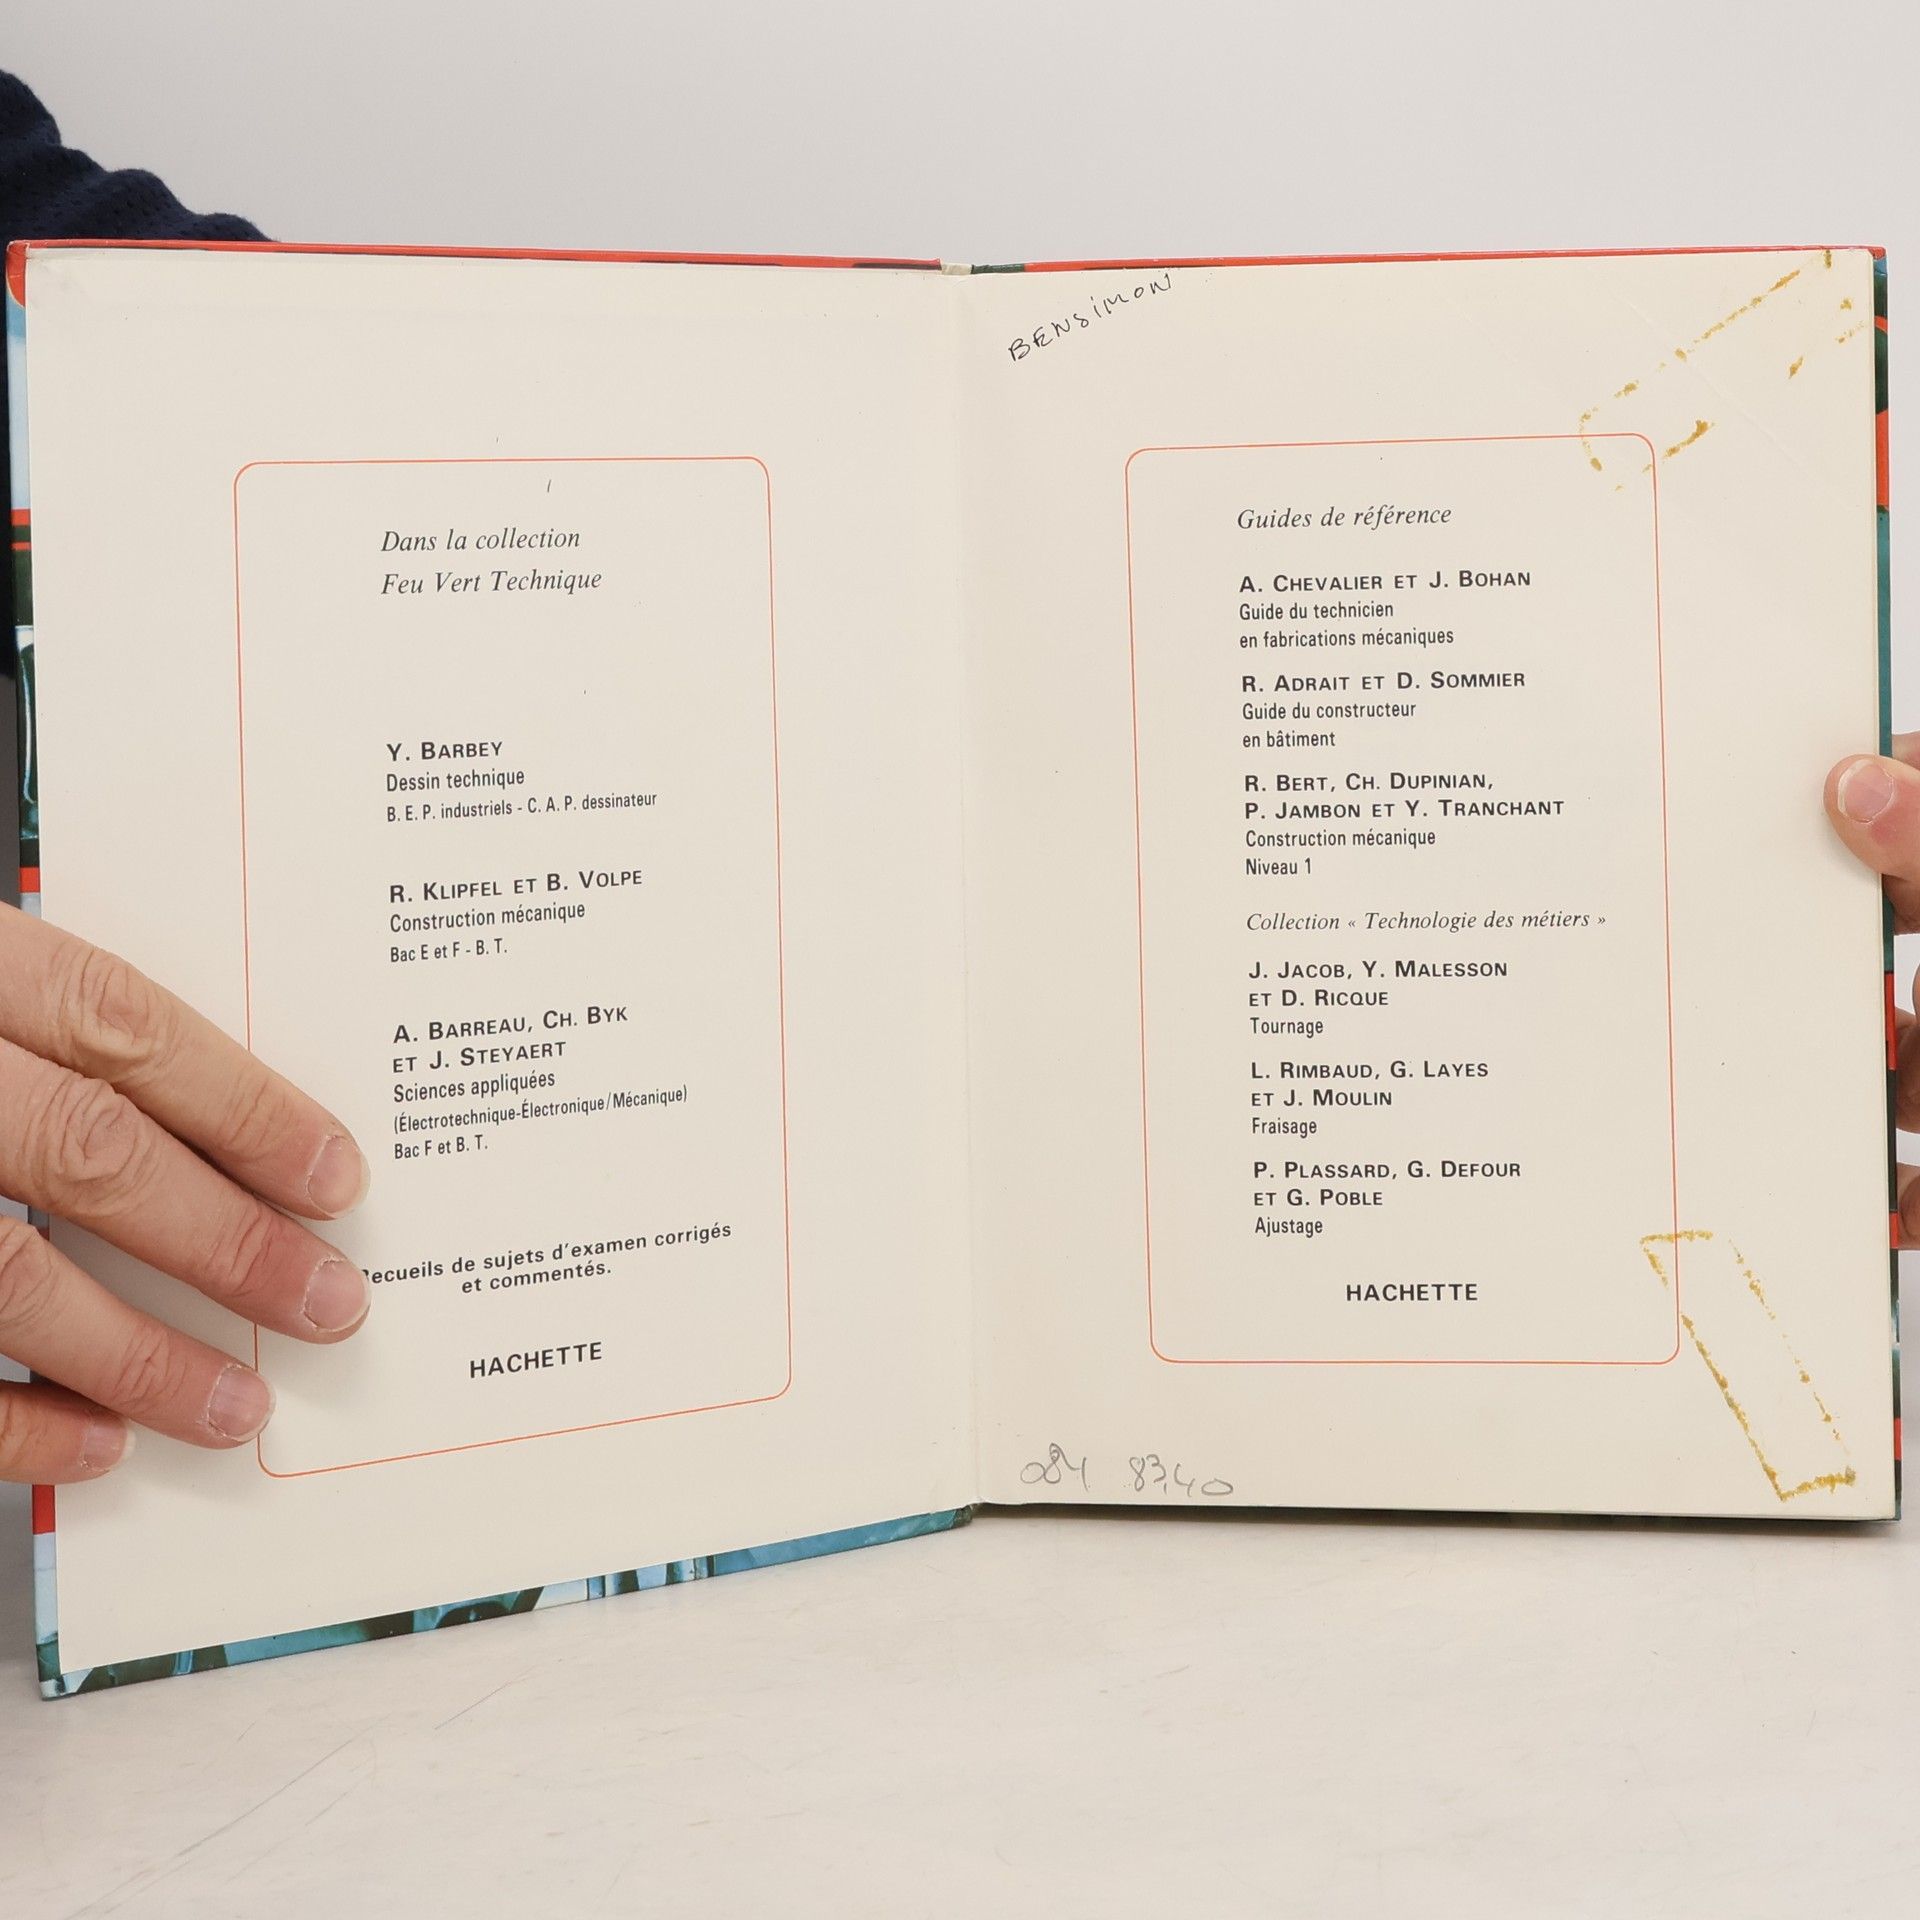 Dans la collection
Feu Vert Technique
Y. BARBEY
Dessin technique
B. E. P. industriels - C. A. P. dessinateur
R. KLIPFEL ET B. VOLPE
Construction mécanique
Bac E et F - B. T.
A. BARREAU, CH. BYK
ET J. STEYAERT
Sciences appliquées
(Électrotechnique-Électronique/Mécanique)
Bac F et B. T.
Recueils de sujets d'examen corrigés
et commentés.
HACHETTE
BENSIMON
Guides de référence
A. CHEVALIER ET J. BOHAN
Guide du technicien
en fabrications mécaniques
R. ADRAIT ET D. SOMMIER
Guide du constructeur
en bâtiment
R. BERT, CH. DUPINIAN,
P. JAMBON ET Y. TRANCHANT
Construction mécanique
Niveau 1
Collection « Technologie des métiers »
J. JACOB, Y. MALESSON
ET D. RICQUE
Tournage
L. RIMBAUD, G. LAYES
ET J. MOULIN
Fraisage
P. PLASSARD, G. DEFOUR
ET G. POBLE
Ajustage
HACHETTE
084 83,40